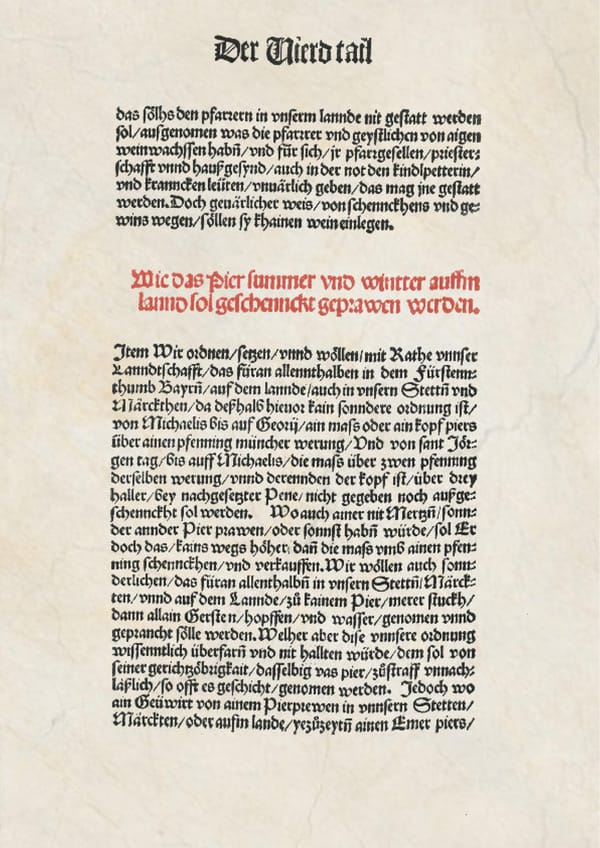 Der Vierd tail
das sölhs den pfarrern in vnserm lannde nit gestatt werden
sol/ausgenomen was die pfarrer vnd geystlichen von aigen
weinwachssen habñ/vnd für sich/jr pfarrgesellen/priester-
schafft vnnd haußgesynd/auch in der not den kindlpetterin/
vnd kranncken leüten/vnuärlich geben/das mag jne gestatt
werden. Doch geuärlicher weis/von schennckhens vnd ge-
wins wegen/söllen sy khainen wein einlegen.
Wie das Pier summer vnd winter auffm
lannd sol geschennckt geprawen werden.
Jtem Wir ordnen/setzen/vnnd wöllen/mit Rathe vnnser
Lanndtschafft/das füran allennthalben in dem Fürstenn-
thumb Bayrñ/auf dem lannde/auch in vnsern Stettñ vnd
Märckthen/da deßhalb hieuor kain sonndere ordnung ist/
von Michaelis bis auf Georij/ain mass oder ain kopf piers
über ainen pfenning müncher werung/Vnd von sant Jör-
gen tag/bis auff Michaelis/die mass über zwen pfenning
derselben werung/vnnd derennden der kopf ist/über drey
haller/bey nachgesetzter Pene/nicht gegeben noch aufge-
schennckht sol werden. Wo auch ainer nit Mertzñ/sonn-
der annder Pier prawen/oder sonnst habñ würde/sol Er
doch das/kains wegs höher/dañ die mass vmb ainen pfen-
ning schennckhen/vnd verkauffen. Wir wöllen auch sonn-
derlichen/das füran allenthalbñ in vnsern Stettñ/Märck-
ten/vnnd auf dem Lannde/zů kainem Pier/merer stuckh/
dann allain Gersten/hopffen/vnd wasser/genomen vnnd
geprancht sölle werden. Welher aber dise vnnsere ordnung
wissenntlich überfarñ vnd nit hallten würde/dem sol von
seiner gerichtzöbrigkait/dasselbig vas pier/zůstraff vnnach-
läßlich/so offt es geschicht/genomen werden. Jedoch wo
ain Geüwirt von ainem Pierprewen in vnnsern Stetten/
Märckten/oder aufm lande/yezůzeytñ ainen Emer piers/